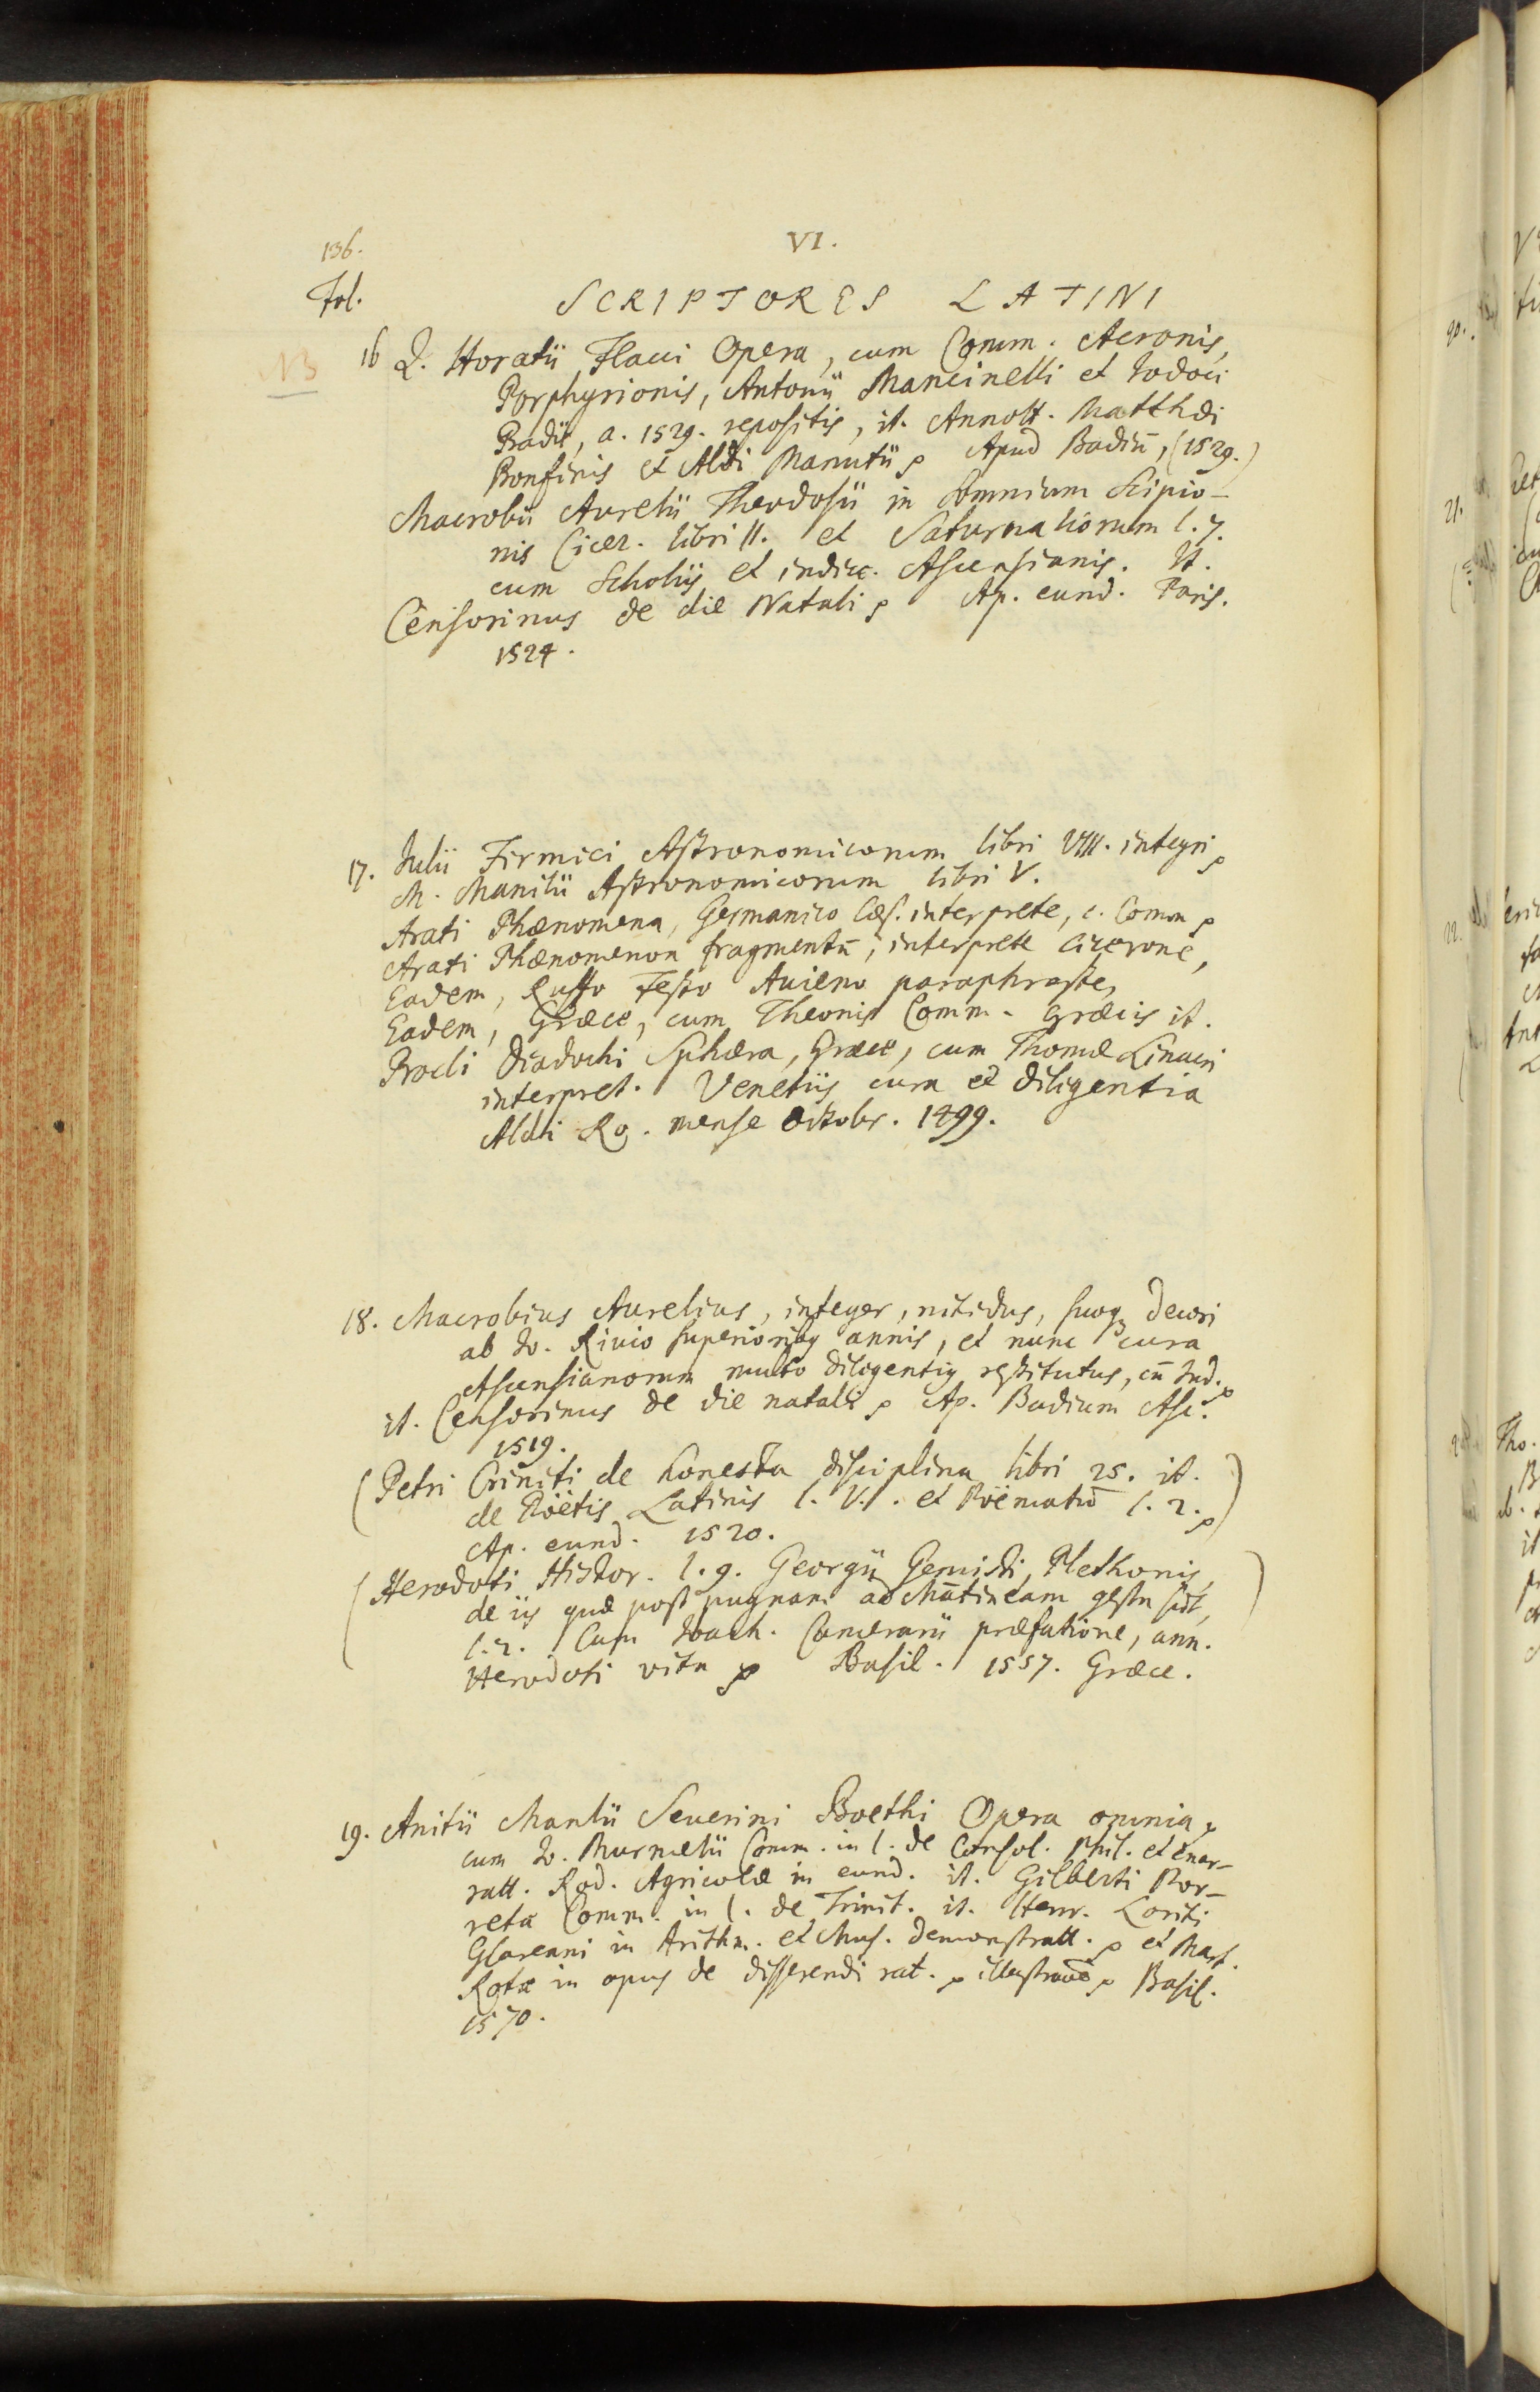 136.
VI.
Fol.
SCRIPTORES LATINI
NB
16 Q. Horatii Flacci Opera, cum Comm. Acronis,
Porphyrionis, Antonii Mancinelli et Iodoci
Badii, a. 1529. repositis, it. Annott. Matthæi
Bonfinis et Aldi Manutii Apud Badiū, (1529.)
Macrobii Aurelii Theodosii in Somnium Scipio-
nis Cicer. libri II. et Saturnaliorum l. 7.
cum Scholiis et indice. Ascensianis. It.
Censorinus de die Natali Ap. eund. Paris.
1524.
17. Iulii Firmici Astronomicorum libri VIII. integri
M. Manilii Astronomicorum libri V.
Arati Phænomena, Germanico Cæs. interprete, c. Comm
Arati Phænomenon fragmentū, interprete Cicerone,
Eadem, Ruffo Festo Auieno paraphraste,
Eadem, Græce, cum Theonis Comm. Græcis it.
Procli Diadochi Sphæra, Græce, cum Thomæ Linacri
interpret. Venetiis cura et diligentia
Aldi Ro. mense Octobr. 1499.
18. Macrobius Aurelius, integer, nitidus, suoq; decori
ab Io. Riuio superiorib; annis, et nunc cura
Ascensianorum multo diligentiꝰ restitutus, cū Ind.
it. Censorinus de die natali Ap. Badium Asc.
1519.
(Petri Criniti de honesta disciplina libri 25. it.
de Poëtis Latinis l. V. et Poëmatū l. 2. )
Ap. eund. 1520.
(Herodoti Histor. l. 9. Georgii Gemisti, Plethonis, )
de iis quæ post pugnam ad Mātineam gesta sūt,
l. 2. Cum Ioach. Camerarii præfatione, ann.
Herodoti vita Basil. 1557. Græce.
19. Anitii Manlii Seuerini Boethi Opera omnia
cum Io. Murmelii Comm. in l. de Consol. Phil. et enar-
ratt. Rod. Agricolæ in eund. it. Gilberti Por-
retæ Comm. in l. de Trinit. it. Henr. Loriti
Glareani in Arithm. et Mus. demonstratt. et Mart.
Rotæ in opus de disserendi rat. Basil.
1570.